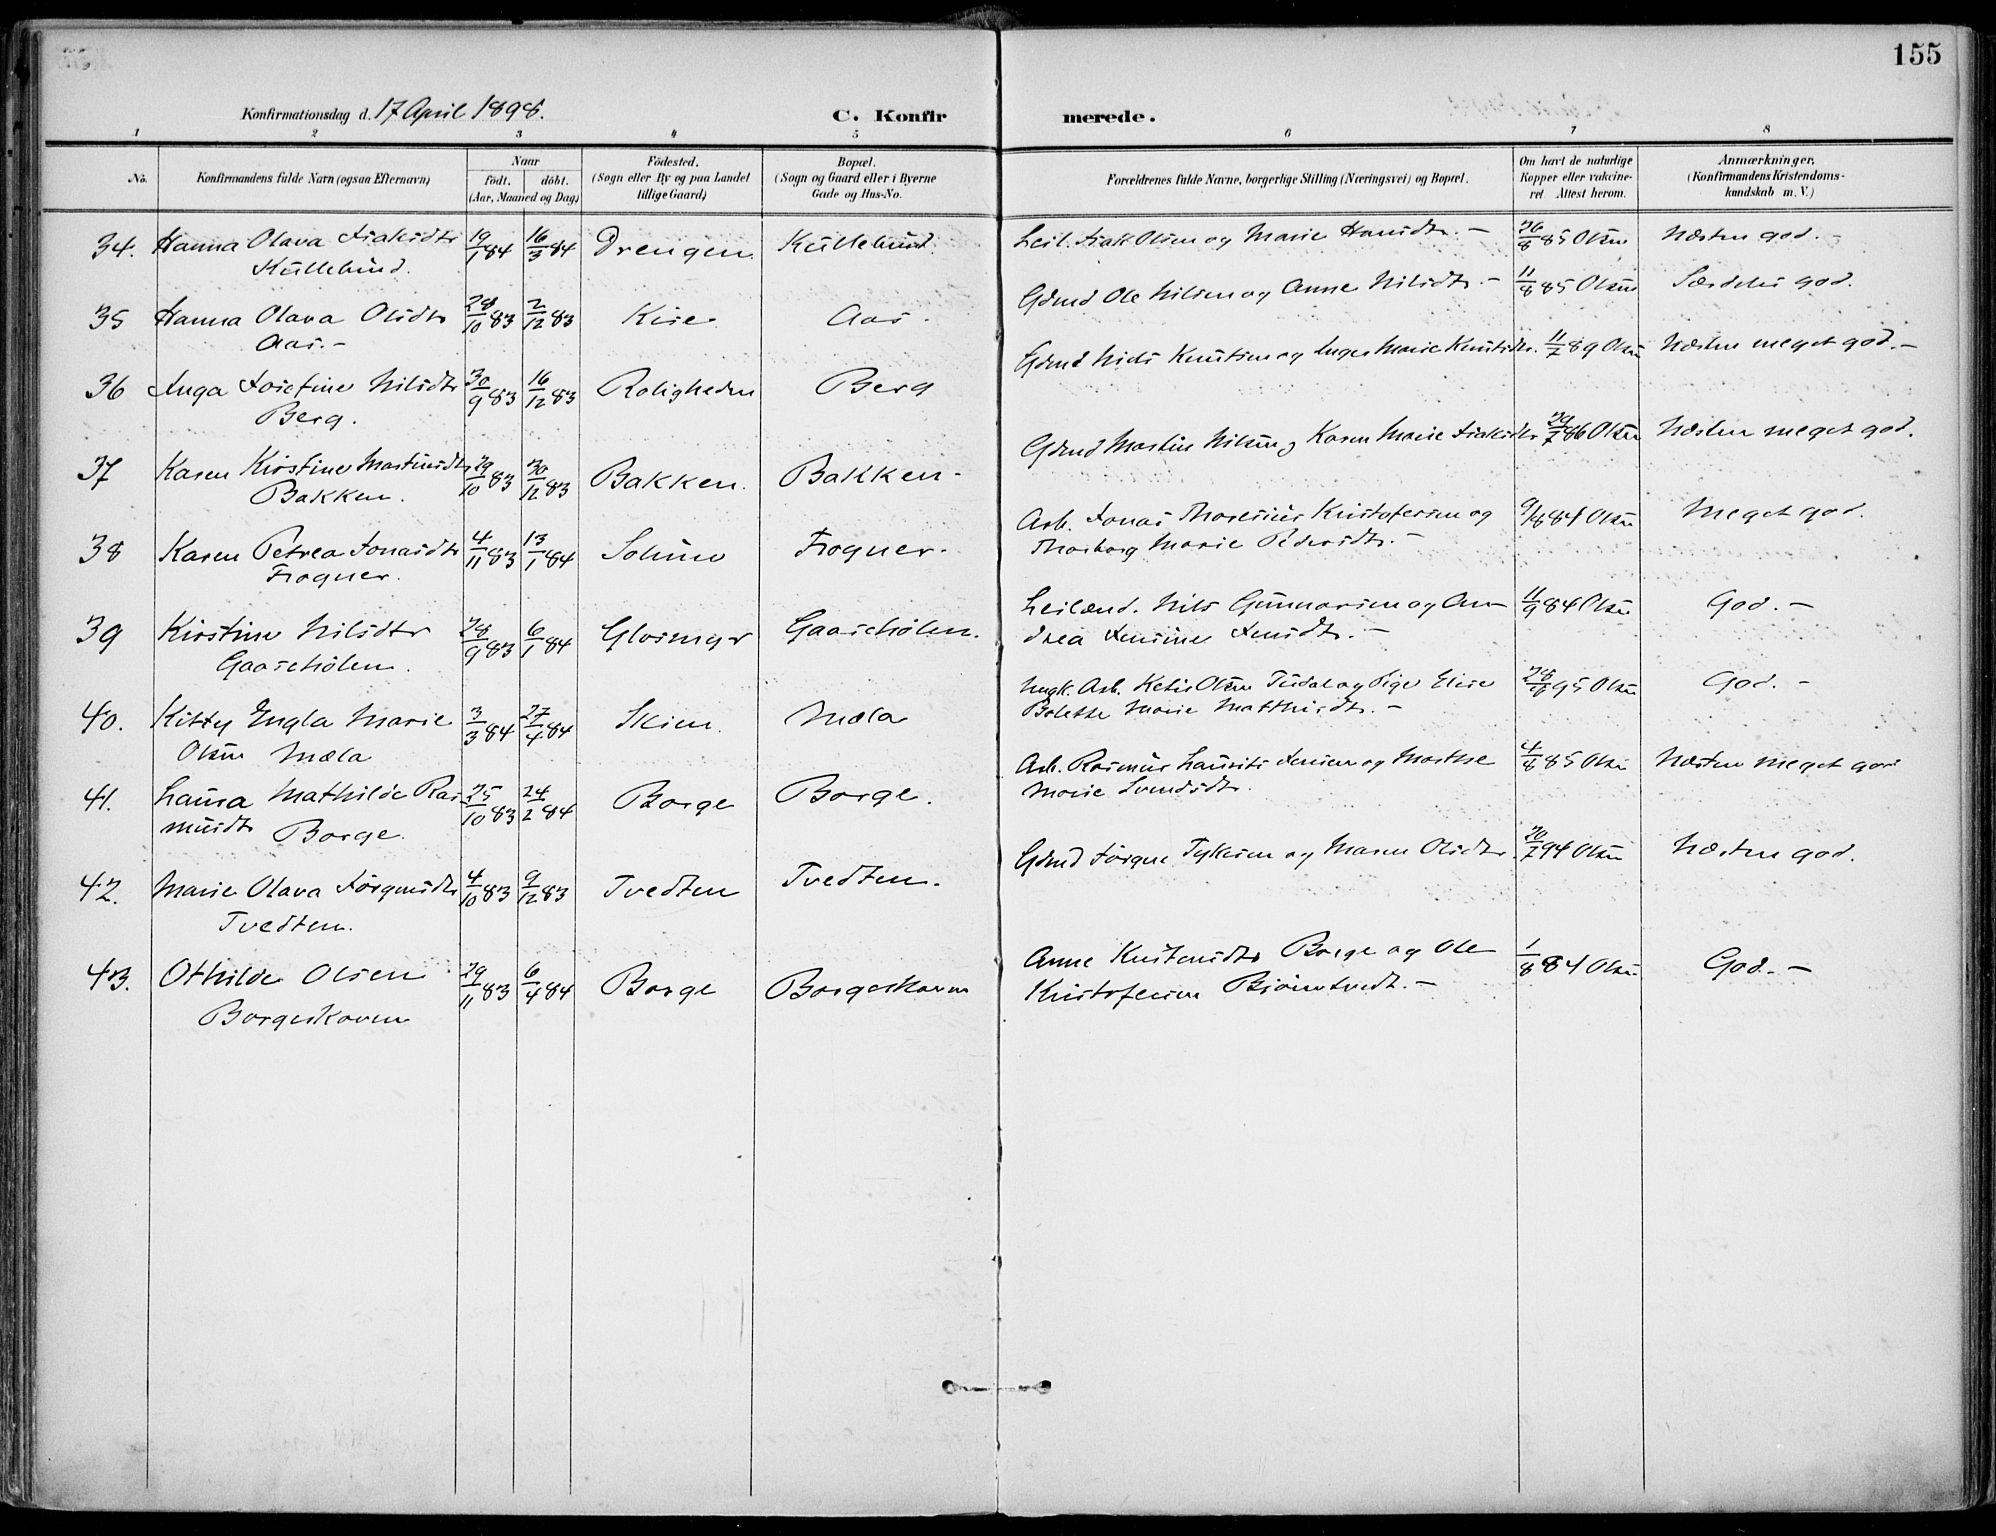 155
Konfirmationsdag d. 17 April 1898.
C. Konfirmerede.
1 2 3 4 5 6 7 8
No.
Konfirmandens fulde Navn (ogsaa Efternavn)
Naar
födt. döbt.
(Aar, Maaned og Dag)
Födested.
(Sogn eller By og paa Landet
tillige Gaard)
Bopæl.
(Sogn og Gaard eller i Byerne
Gade og Hus-No.
Forældrenes fulde Navne, borgerlige Stilling (Næringsvei) og Bopæl.
Om havt de naturlige
Kopper eller vakcine-
ret Attest herom.
Anmærkninger,
(Konfirmandens Kristendoms-
kundskab m. V.)
34. Hanna Olava Isaksdtr 19/1 84 16/3 84 Drengen Kullebund. Leil. Isak Olsen og Marie Hansdtr. - 26/8 85 Olsen Næsten god. -
Kullebund.
35 Hanna Olava Olsdtr 28/10 83 2/12 83 Kise Aas. Gdmd Ole Nilsen og Anne Nilsdtr. - 11/8 85 Olsen Særdeles god.
Aas. -
36 Inga Josefine Nilsdtr 30/9 83 16/12 83 Roligheden Berg Gdmd Niels Knutsen og Inger Marie Knutsdtr. 11/7 89 Olsen Næsten meget god. -
Berg.
37 Karen Kirstine Martinsdtr 29/10 83 30/12 83 Bakken. Bakken - Gdmd Martin Nilsen og Karen Marie Isaksdtr 30/7 86 Olsen Næsten meget god.
Bakken.
38 Karen Petrea Jonasdtr 4/11 83 13/1 84 Solum Frogner. Arb. Jonas Thorsius Kristofersen og 9/8 84 Olsen Meget god.
Frogner. Thorborg Marie Pedersdtr. -
39 Kirstine Nilsdtr 28/9 83 6/1 84 Glosmyr Gaasehølen. Leilænd. Nils Gunnarsen og An- 11/9 84 Olsen God. -
Gaasehølen. drea Jensine Jensdtr. -
40. Kitty Engla Marie 3/3 84 27/4 84 Skien. Mæla Ungk. Arb. Ketil Olsen og Pige Elise 28/8 95 Olsen God. -
Olsen Mæla Bolette Marie Matthisdtr. -
41. Laura Mathilde Ras 25/10 83 24/2 84 Borge Borge. Arb. Rasmus Laurits Jensen og Marthe 4/8 85 Olsen Næsten meget god
musdtr Borge. Marie Svendsdtr.
42. Marie Olava Jørgensdtr 4/10 83 9/12 83 Tvedten Tvedten. Gdmd Jørgen Tykesen og Maren Olsdtr. 20/7 94 Olsen Næsten god.
Tvedten.
43. Othilde Olsen 29/11 83 6/4 84 Borge Borgeskoven Anne Knutsdtr Borge og Ole 1/8 84 Olsen God. -
Borgeskoven Kristofersen Bjørntvedt. -